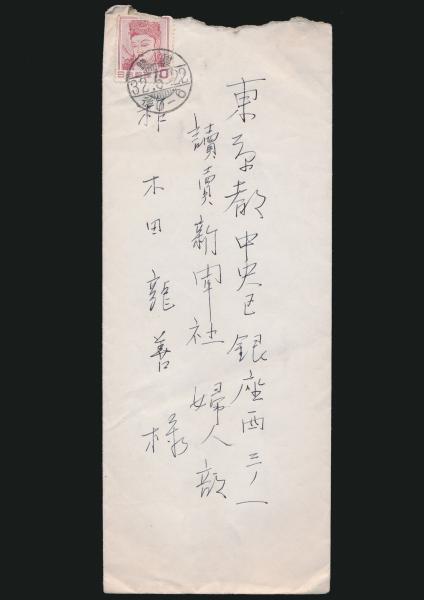 東京都中央区銀座西三ノ一
讀賣新聞社 婦人部
木田龍善様
32.5.22